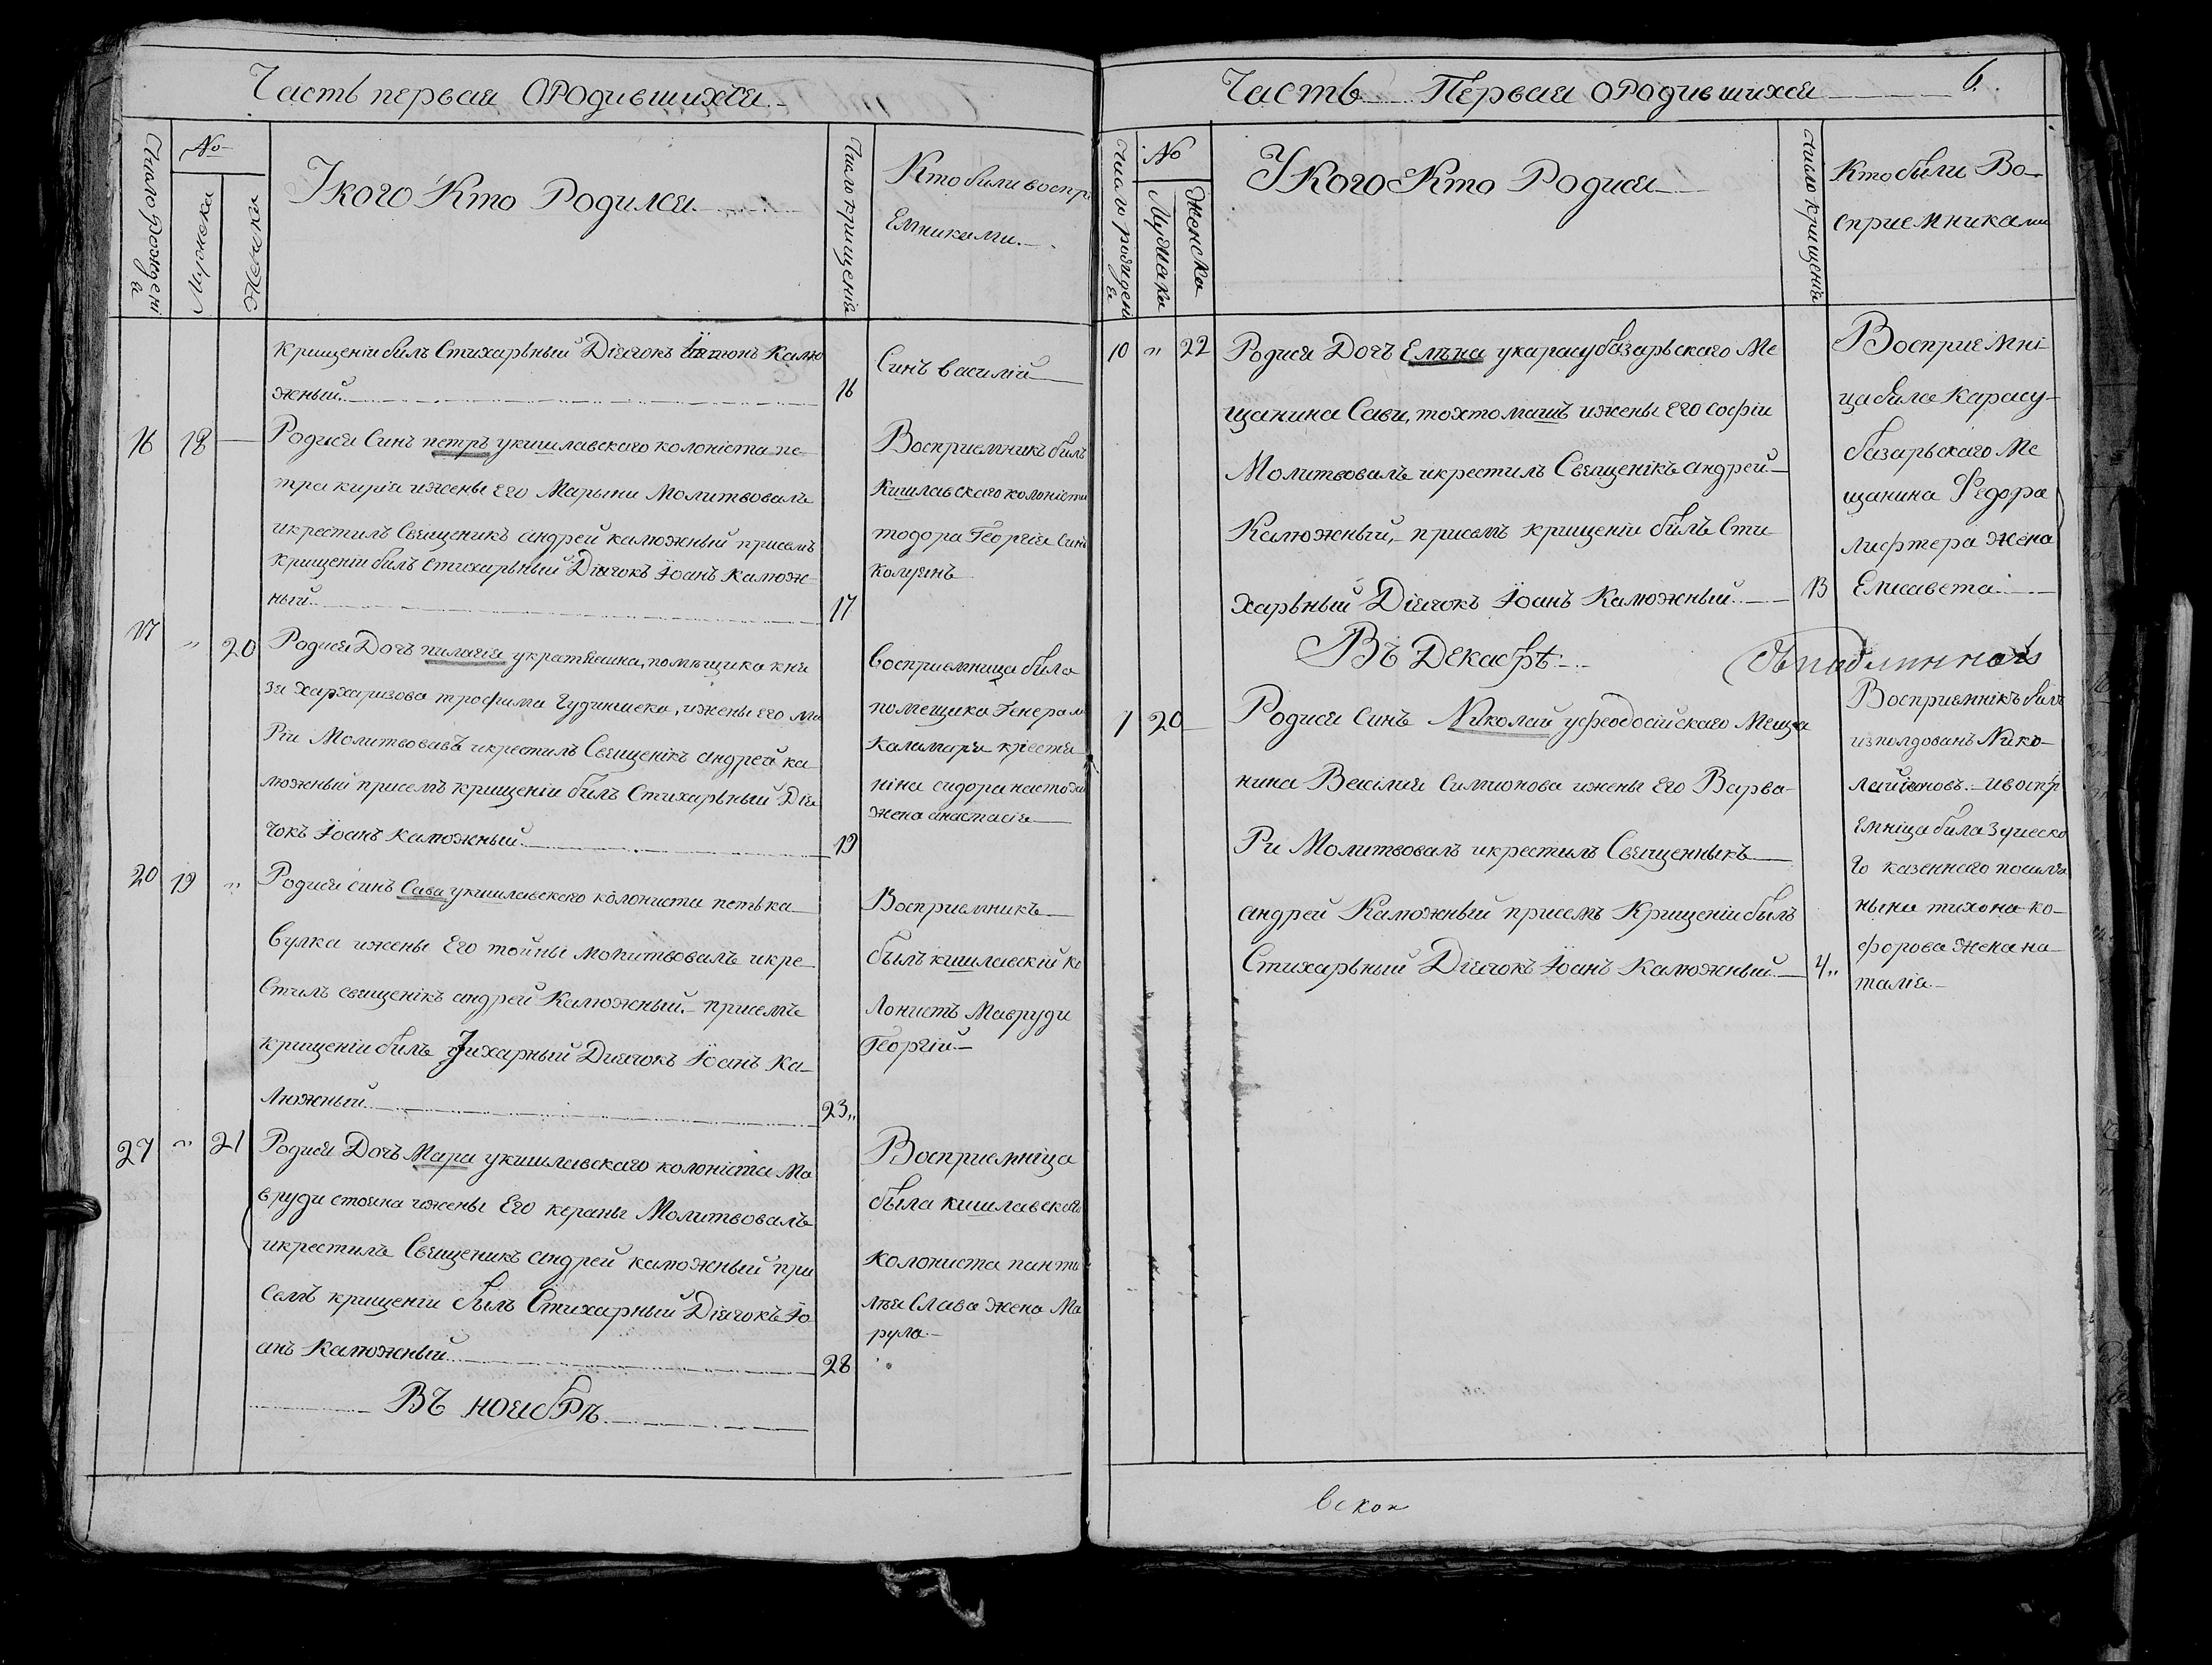 Часть первая ОРодившихся
Число Рождені
я
№
Мужска
Женска
Укого Кто Родился
Число крищенія
Кто били воспри
Емниками.
крищеніи билъ Стихарьный Діячокъ Іоанъ Калю
жный
16
Синъ василій
16
18
Родися Синъ петръ укишлавского колоніста пе-
тра кирія ижены Его Марыни Молитвовалъ
икрестилъ Священикъ андрей калюжный присемъ
крищеніи билъ Стихарьный Діячокъ Іоанъ Калюж-
ный
17
Восприемникъ билъ
Кишлавского колоніста
тодора Георгія Синъ
17
"
20
Родися Дочъ пилагія укрестянина, помѣщика кня
зя трофима, ижены его Ма
Ріи Молитвовавъ икрестилъ Священікъ андрей ка
люжный присемъ крищеніи билъ Стихарьный Дія
чокъ Іоанъ Калюжный
19
Восприемница била
помещика Генерала
крестя
ніна сидора
жена анастасія
20
19
"
Родися синъ Сава укишлавского колониста петька
Вулка ижены Его тойны молитвовалъ икре
Стилъ священікъ андрей Калюжный. присемъ
крищеніи билъ Диячокъ Іоанъ Ка-
люжный
23"
Восприемникъ
былъ кишлавскій ко
лонистъ Мавруди
Георгій
27
"
21
Родися Дочъ Мара укишлавского колоніста Ма
вруди стояна ижены Его кераны Молитвовалъ
икрестилъ Священикъ андрей калюжный при
семъ крищеніи былъ Стихарный Діячокъ Іо
анъ Калюжный
28
Восприемніца
была кишлавского
колониста панти
лѣя Слава жена Ма
рула
Въ ноябрѣ
Часть Первая ОРодившихся
6.
Число рождені
я
№
Мужска
Женска
Укого Кто Родися
число крищенія
Кто били Во-
сприемниками
10
"
22
Родися Дочъ Елѣна укарасубазарьского Ме
щанина Сави, тохтомашъ ижены Его софіи
Молитвовалъ икрестилъ Священікъ андрей
Калюжный, присемъ крищеніи билъ Сти-
харьный Діячокъ Іоанъ Калюжный
13
Восприемні-
ца била Карасу-
базарьского Ме
щанина Федора
лифтера жена
Елисавета
Въ Декабрѣ
1
20
Родися синъ Николай уфеодосійского Меща
нина Василия Симионова ижены Его Варва-
Ри Молитвовалъ икрестилъ Священныкъ
андрей Калюжный присемъ Крищеніи былъ
Стихарьный Діячокъ Іоанъ Калюжный
4"
Восприемнікъ билъ
Нико-
лай ивоспр
Емніца била Зуйско
го казеннаго посиля
ныни тихона
жена на
талія